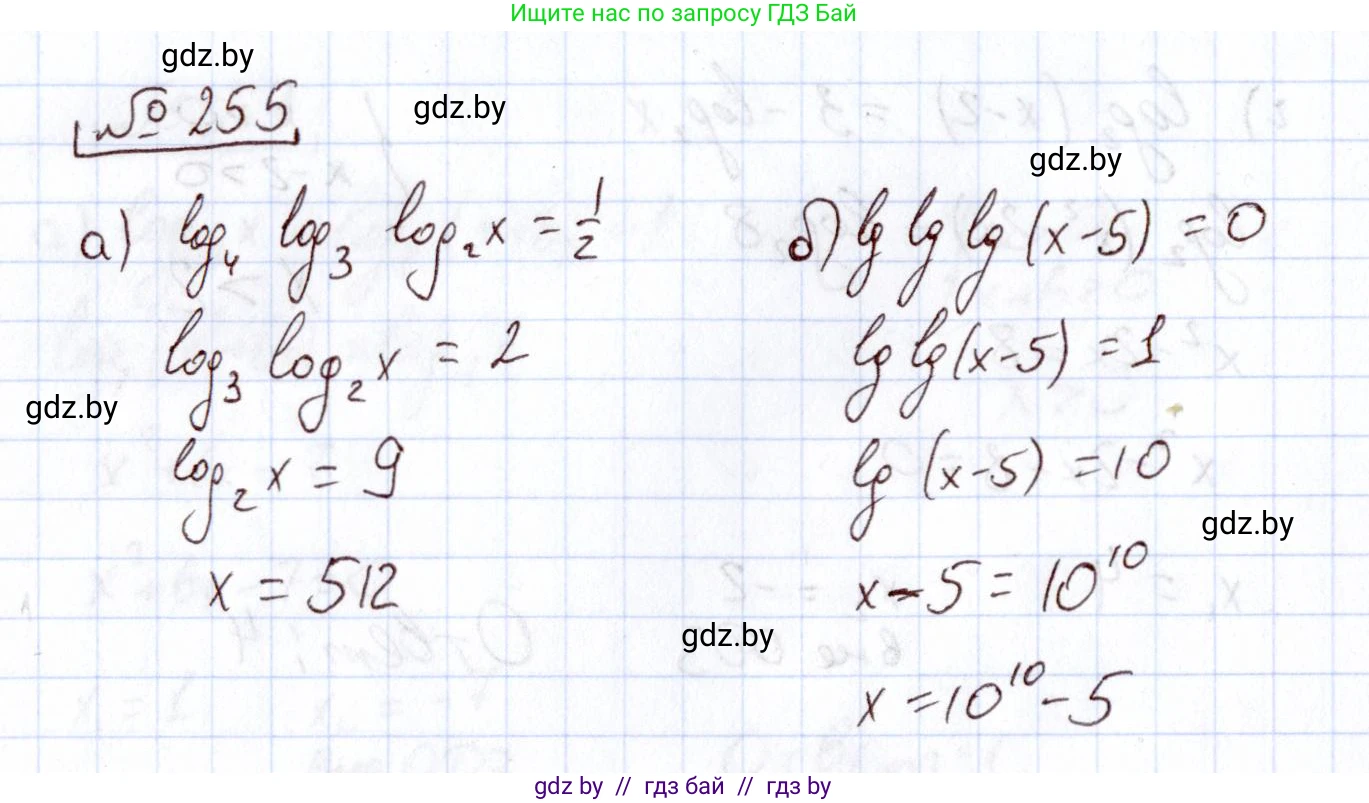 Ищите нас по запросу ГДЗ Бай
gdz.by
№ 255
gdz.by
gdz.by
а) log₄ log₃ log₂ x = 1/2
log₃ log₂ x = 2
gdz.by
log₂ x = 9
x = 512
б) lg lg lg (x-5) = 0
lg lg (x-5) = 1
lg (x-5) = 10
gdz.by
x - 5 = 10¹⁰
gdz.by
x = 10¹⁰ - 5
gdz.by // гдз бай // гдз by